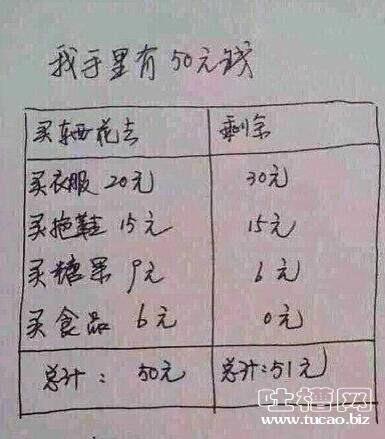 我手里有50元钱
买东西花去 剩余
买衣服 20元 30元
买拖鞋 15元 15元
买糖果 9元 6元
买食品 6元 0元
总计: 50元 总计:51元
吐槽网
www.tucao.biz